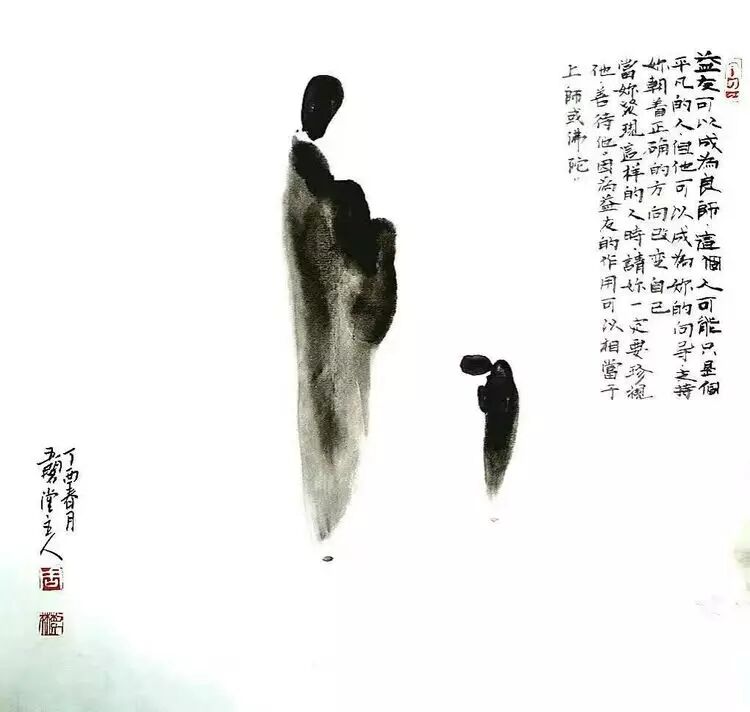 益友可以成為良師，這個人可能只是個
平凡的人，但他可以成為妳的向导，支持
妳朝着正确的方向改变自己
當妳发現這样的人時，請妳一定要珍視
他，善待他，因為益友的作用可以相當于
上師或佛陀。
丁酉春月
五堂主人